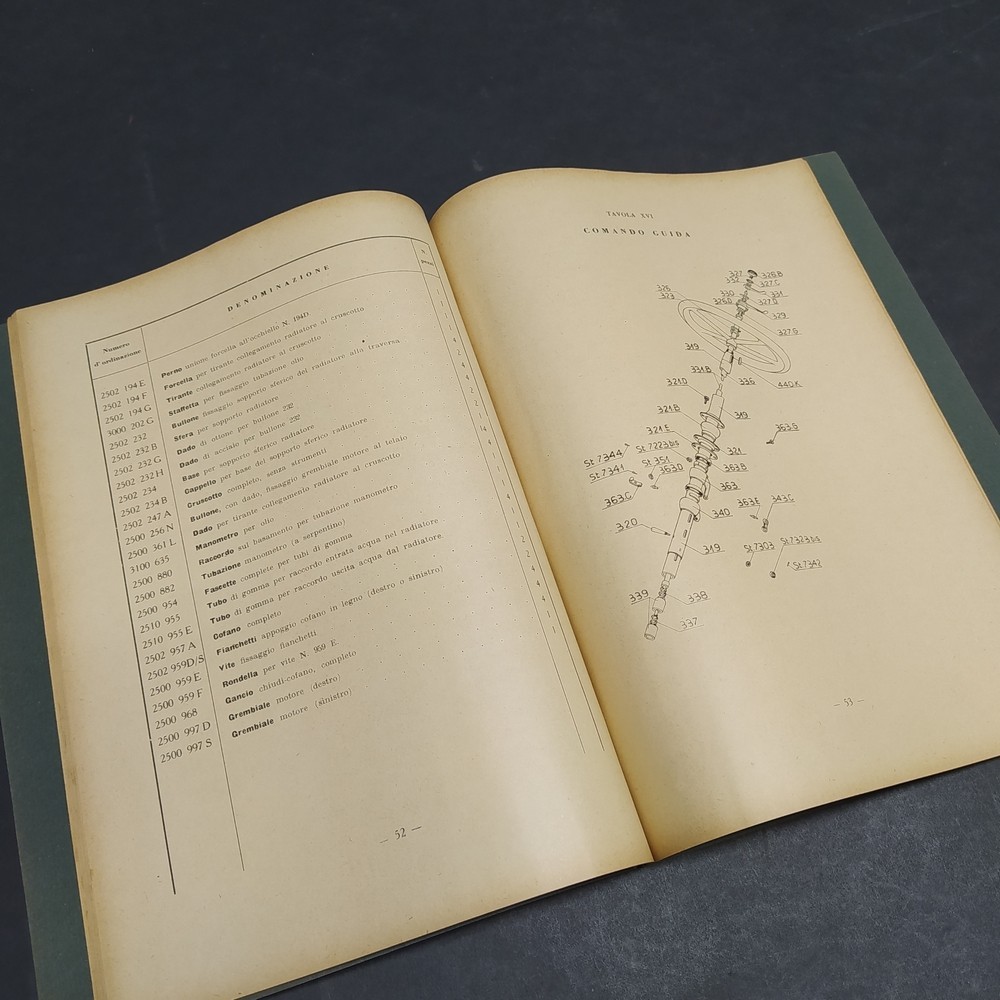 Numero d'ordinazione
DENOMINAZIONE
N. pezzi
2502 194 E Perno unione forcella all'occhiello N. 194D
2502 194 F Forcella per tirante collegamento radiatore al cruscotto
2502 194 G Tirante collegamento radiatore al cruscotto
3000 202 G Staffetta per fissaggio tubazione olio
2502 232 Bullone fissaggio sopporto sferico del radiatore alla traversa
2502 232 B Sfera per sopporto radiatore
2502 232 G Dado di ottone per bullone 232
2502 232 H Dado di acciaio per bullone 232
2502 234 Base per sopporto sferico radiatore
2502 234 B Cappello per base del sopporto sferico radiatore
2502 247 A Cruscotto completo, senza strumenti
2500 256 N Bullone, con dado, fissaggio grembiale motore al telaio
2500 361 L Dado per tirante collegamento radiatore al cruscotto
3100 635 Manometro per olio
2500 880 Raccordo sul basamento per tubazione manometro
2500 882 Tubazione manometro (a serpentino)
2500 954 Fascette complete per tubi di gomma
2510 955 Tubo di gomma per raccordo entrata acqua nel radiatore
2510 955 E Tubo di gomma per raccordo uscita acqua dal radiatore
2502 957 A Cofano completo
2502 959D/S Fianchetti appoggio cofano in legno (destro o sinistro)
2500 959 E Vite fissaggio fianchetti
2500 959 F Rondella per vite N. 959 E
2500 968 Gancio chiudi-cofano, completo
2500 997 D Grembiale motore (destro)
2500 997 S Grembiale motore (sinistro)
— 52 —
TAVOLA XVI
COMANDO GUIDA
327 326.B
332 327.C
326 330 331
323 326.D 327.D
329
327.G
319
331.B
321.D 336 440.K
321.B 319
321.E 363.G
St.7344 St.7223.bis 321
St.7341 St.351 363.D 363.B
363.C 363
363.E 343.C
340
320
319 St.7303 St.7323.bis
St.7342
339 338
337
— 53 —